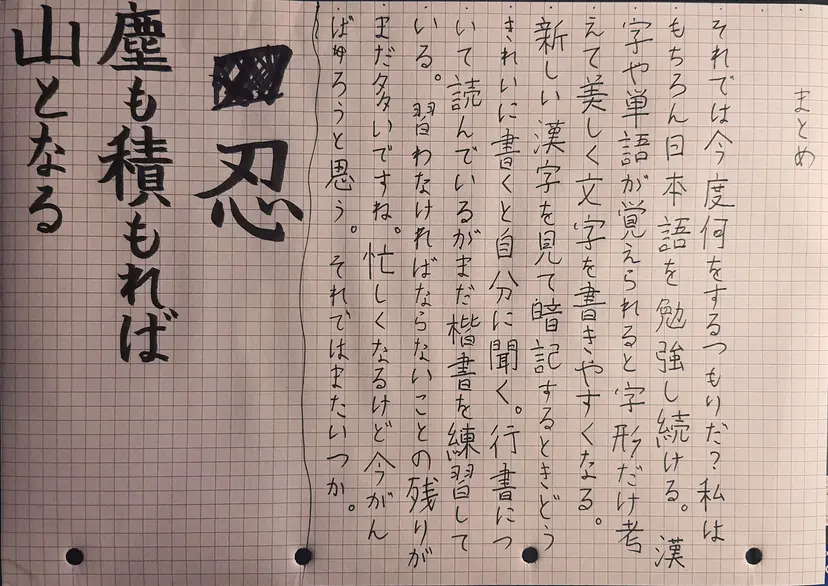 まとめ
それでは今度何をするつもりだ？私は
もちろん日本語を勉強し続ける。漢
字や単語が覚えられると字形だけ考
えて美しく文字を書きやすくなる。
新しい漢字を見て暗記するときどう
きれいに書くと自分に聞く。行書につ
いて読んでいるがまだ楷書を練習して
いる。習わなければならないことの残りが
まだ多いですね。忙しくなるけど今がん
ばろうと思う。それではまたいつか。
忍
塵も積もれば
山となる